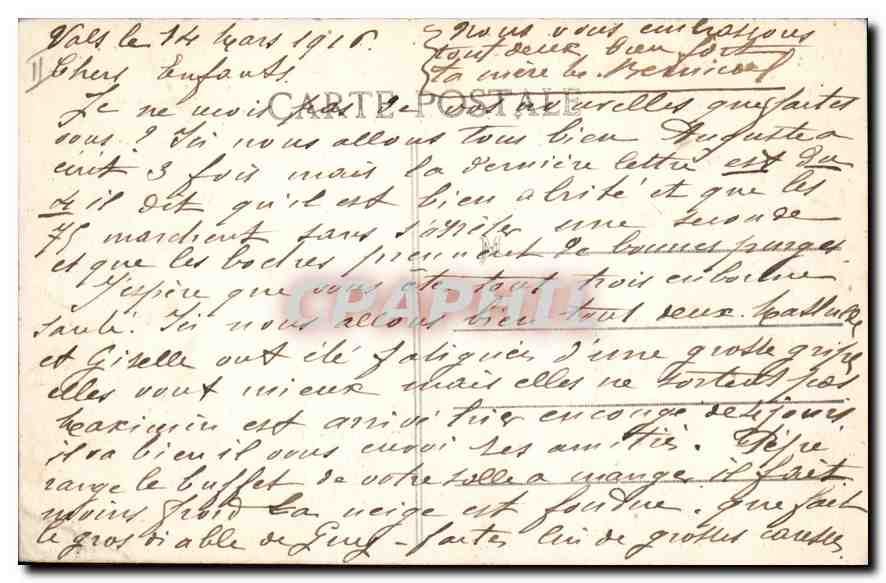 Vals le 14 Mars 1916.
Nous vous embrassons
tout deux bien fort
ta mère
Chers Enfants.
CARTE POSTALE
Je ne reçois pas de vos nouvelles que faites
vous? Ici nous allons tous bien Auguste a
écrit 3 fois mais la dernière lettre est du
4 il dit qu'il est bien abrité et que les
75 marchent sans s'arrêter une seconde
et que les boches prennent de bonnes purges.
J'espère que vous êtes tout trois en bonne
santé. Ici nous allons bien tout deux
et Giselle ont été fatiguées d'une grosse gripe
elles vont mieux mais elles ne sortent pas
Maximin est arrivé hier en congé de 4 jours
il va bien il vous envoi ses amitiés. Pépé
range le buffet de votre salle a manger il fait
moins froid La neige est fondue. que fait
le gros diable de Guey - faites lui de grosses caresses
M
CPAPHIL